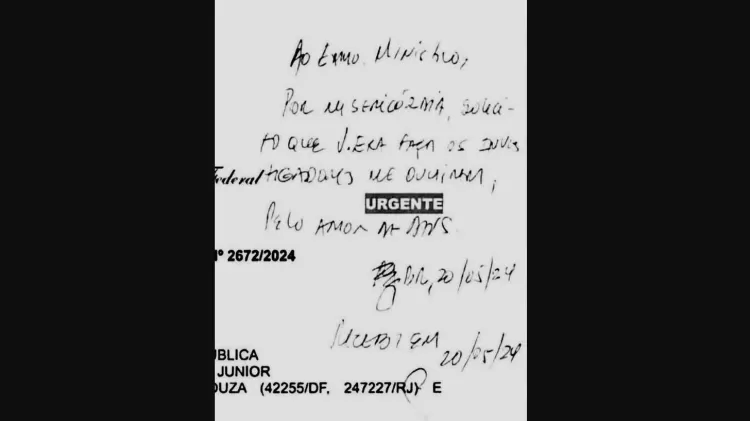 Ao Exmo. Ministro,
Por misericórdia, solici-
to que V. Exa faça os inves
Federal tigadores me ouvirem,
URGENTE
Pelo amor de Deus.
Nº 2672/2024
BR, 20/05/24
Recebi em
20/05/24
ÚBLICA
JUNIOR
OUZA (42255/DF, 247227/RJ) E